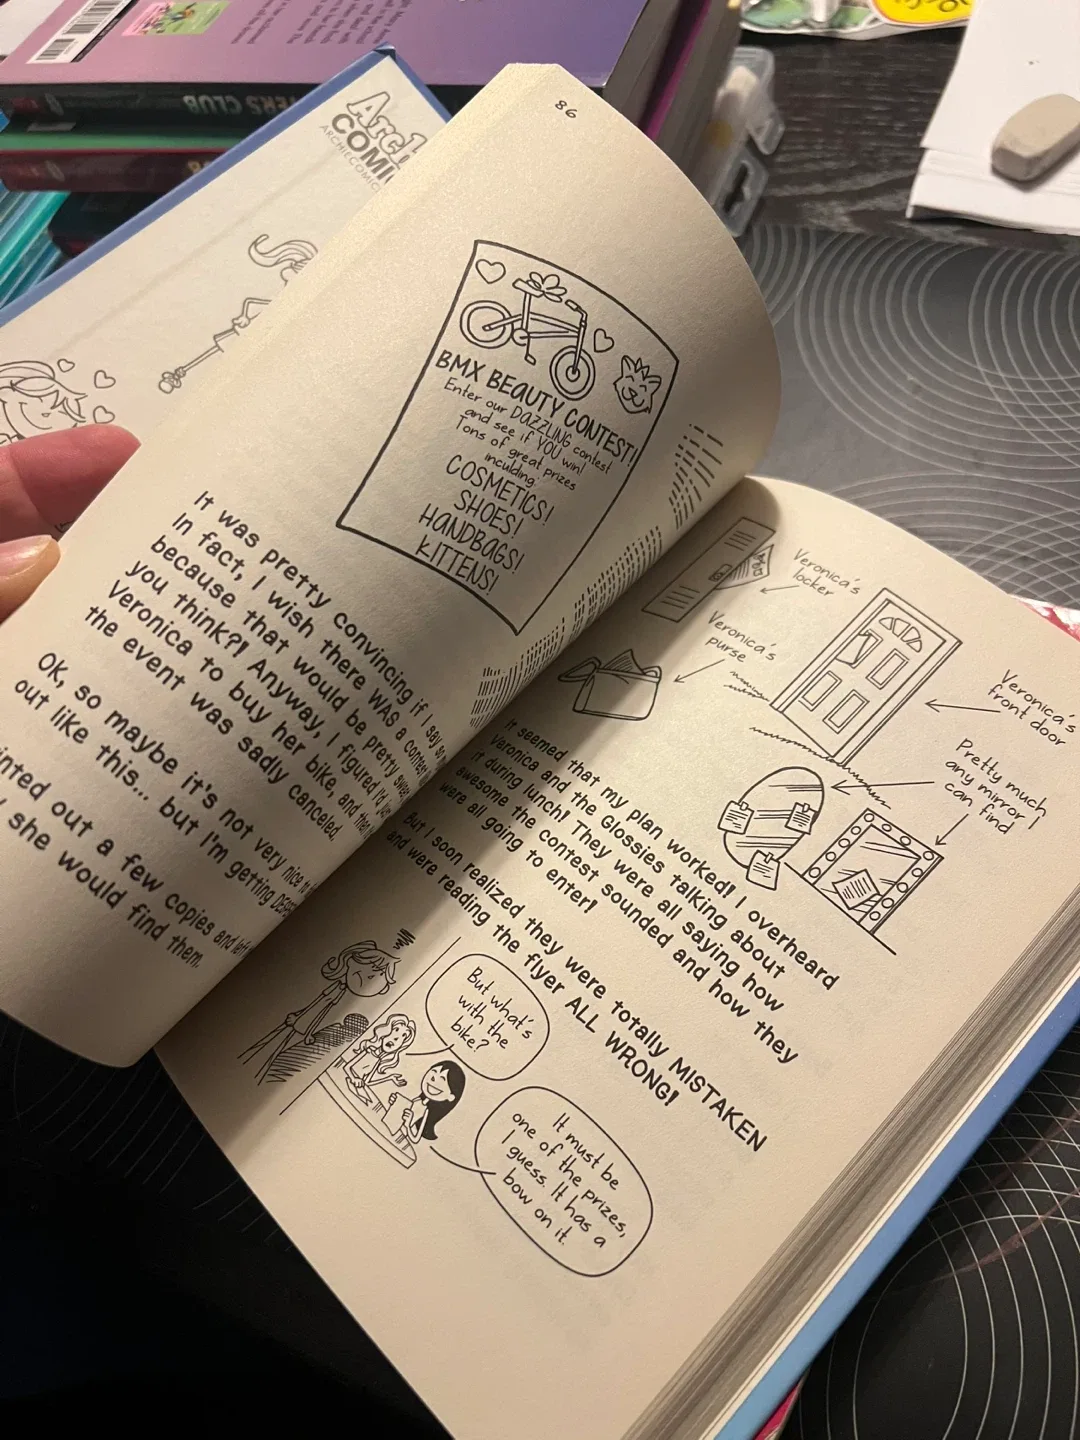 ERS CLUB
Archi
COMI
ARCHIECOMIC
86
BMX BEAUTY CONTEST!
Enter our DAZZLING contest
and see if YOU win!
Tons of great prizes
inculding:
COSMETICS!
SHOES!
HANDBAGS!
KITTENS!
It was pretty convincing if I say so
In fact, I wish there WAS a contest
because that would be pretty sweet
you think?! Anyway, I figured I'd just
Veronica to buy her bike, and then
the event was sadly canceled.
OK, so maybe it's not very nice to
out like this... but I'm getting
inted out a few copies and left
she would find them.
Veronica's
locker
Veronica's
purse
Veronica's
front door
Pretty much
any mirror I
can find
It seemed that my plan worked! I overheard
Veronica and the Glossies talking about
it during lunch! They were all saying how
awesome the contest sounded and how they
were all going to enter!
But I soon realized they were totally MISTAKEN
and were reading the flyer ALL WRONG!
But what's
with the
bike?
It must be
one of the prizes,
I guess. It has a
bow on it.